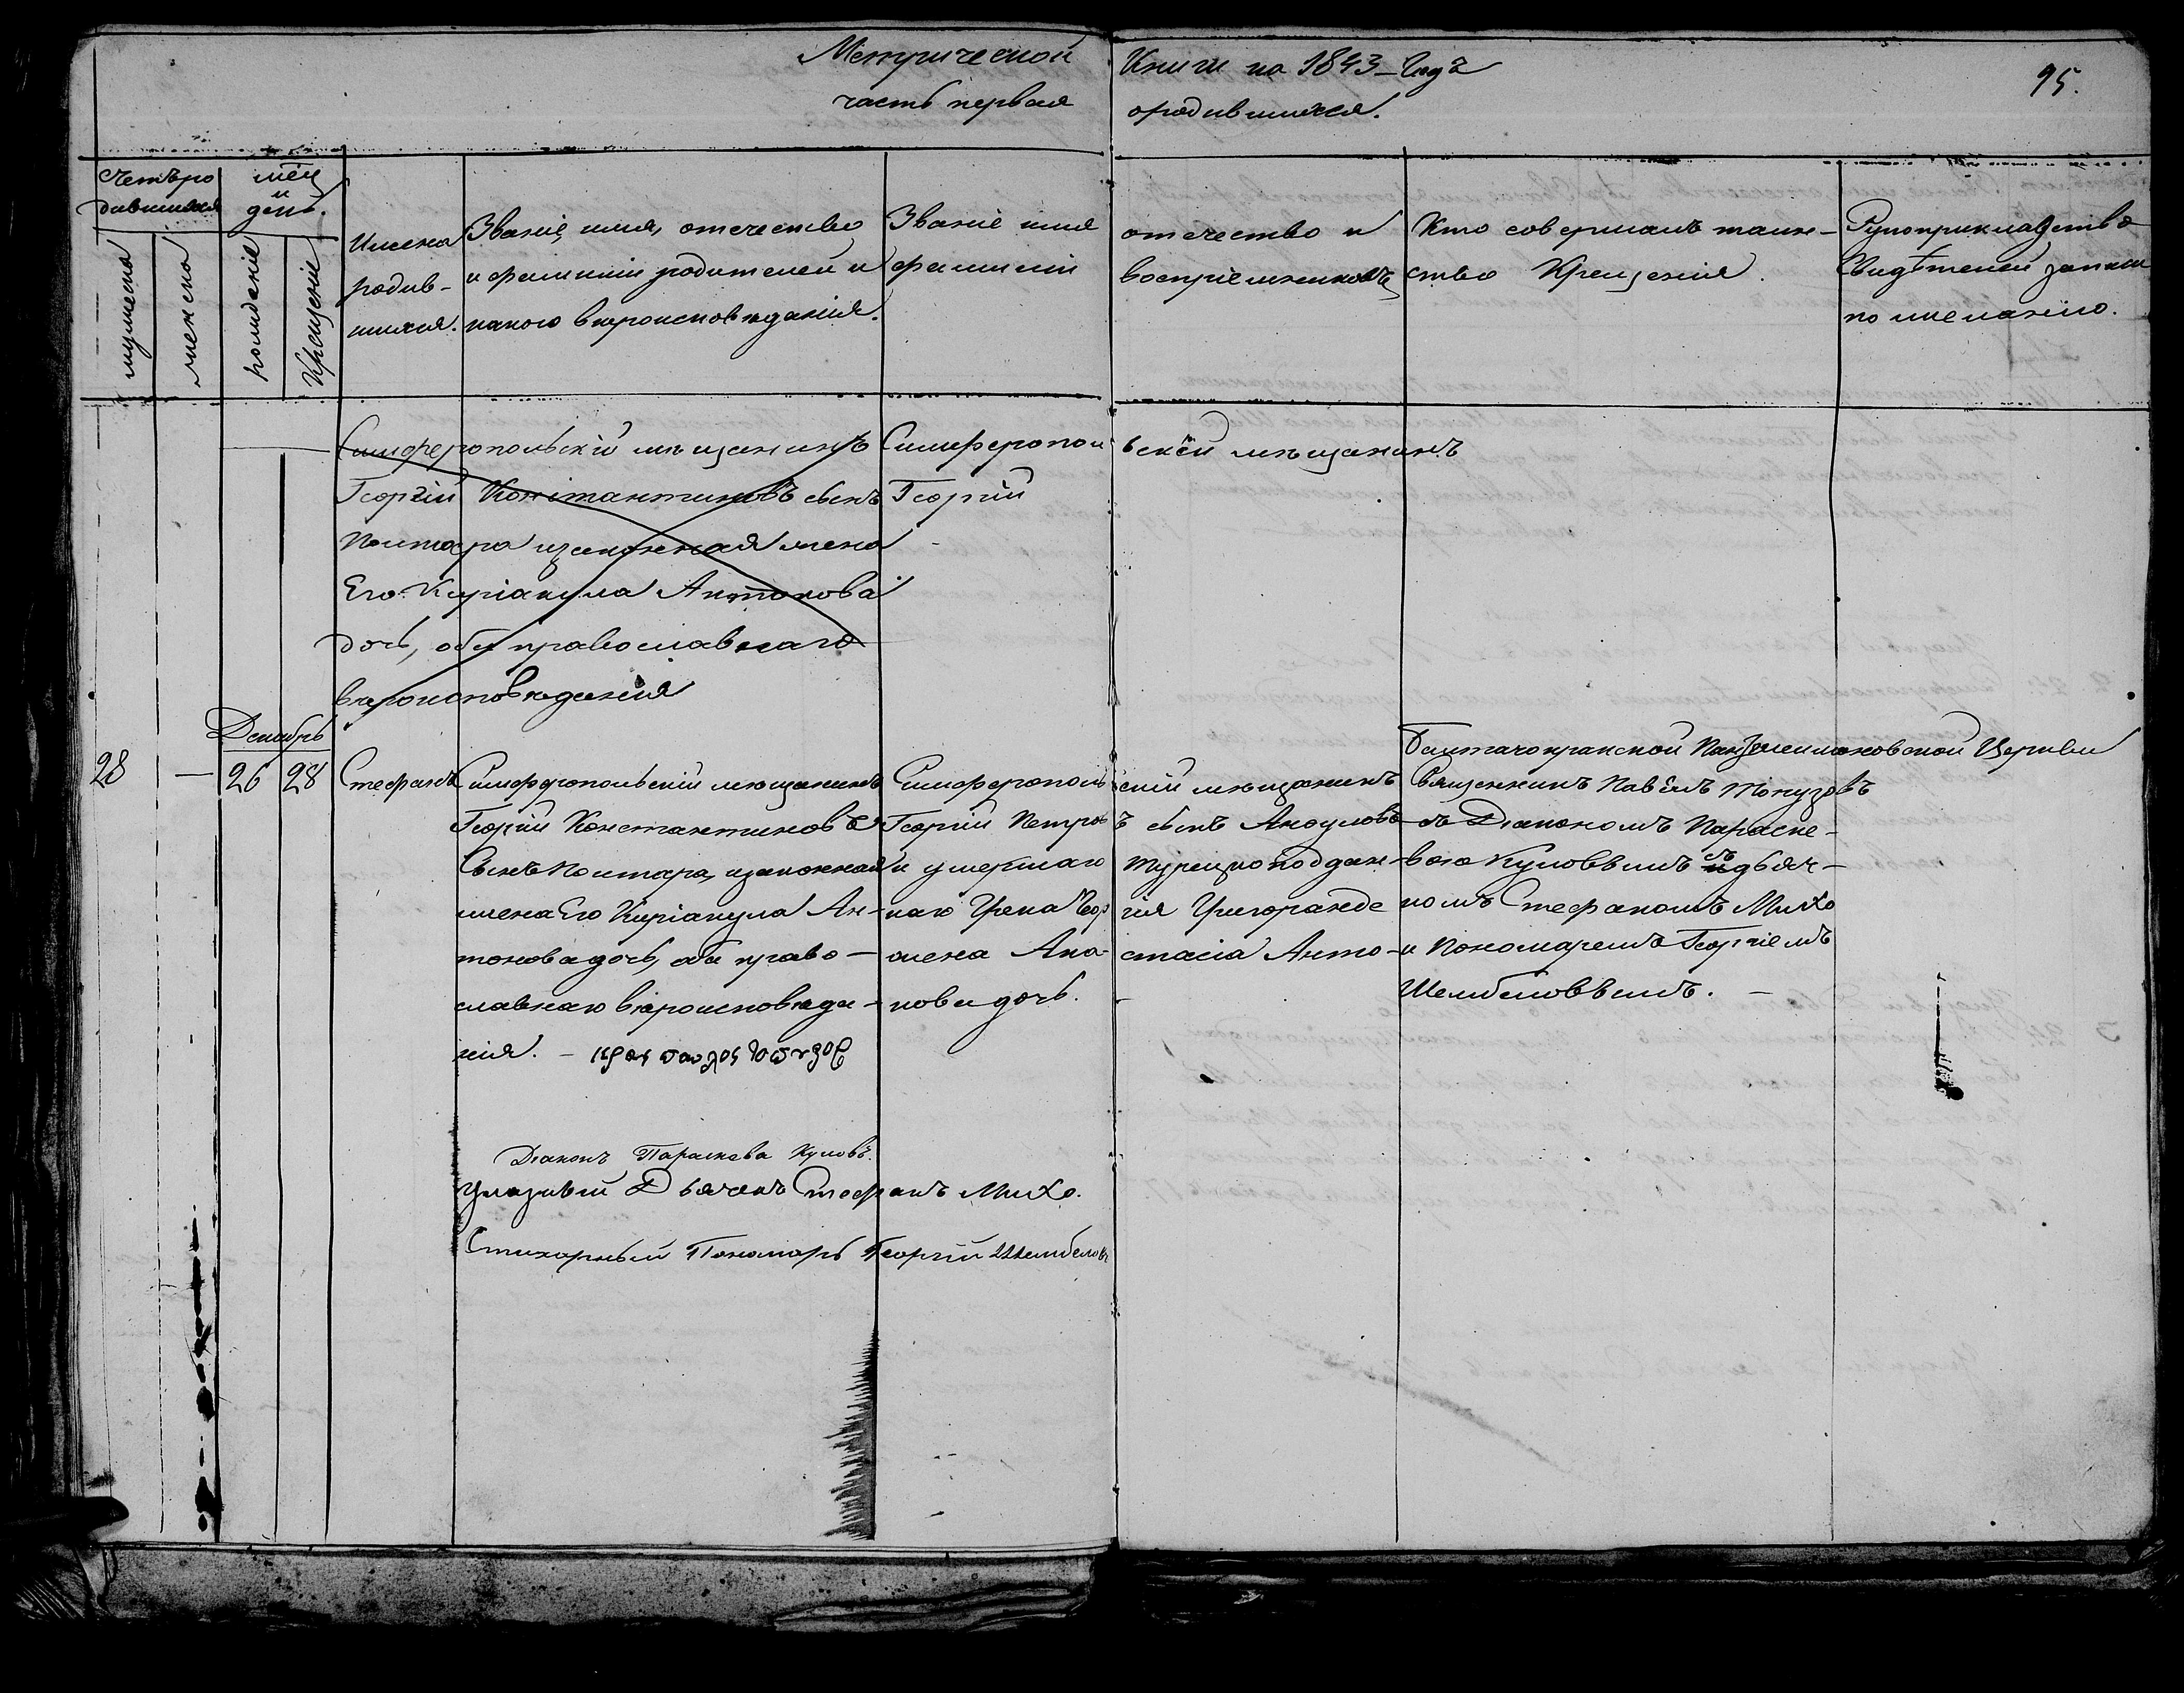 Метрической Книги на 1843 Годъ
95.
часть первая о родившихся.
Счетъ ро
дившихся
мѣц
и
день.
мужеска
женска
рожденіе
Крещеніе
Имена
родив-
шихся.
Званіе, имя, отечество
и фамиліи родителей и
какого вѣроисповѣданія.
Званіе имя
фамиліи
отечество и
воспріемниковъ
Кто совершалъ таин-
ство Крещенія.
Рукоприкладство
Свидѣтелей записи
по желанію.
Симферопольскій мѣщанинъ
Георгій Константиновъ сынъ
законная жена
Его Киріакула Антонова
дочь, оба православнаго
вѣроисповѣданія
Симферопольскій мѣщанинъ
Георгій
Декабрь
28 — 26 28
Стефанъ
Симферопольскій мѣщанинъ
Георгій Константиновъ
Сынъ законная
жена Его Киріакула Ан-
тонова дочь, оба право-
славнаго вѣроисповѣда-
нія.
Симферопольскій мѣщанинъ
Георгій Петровъ сынъ
и умершаго Турецкоподдан-
наго Грека Георгія
жена Анастасія Анто-
нова дочь.
Церкви
Священникъ Павелъ
съ Діакономъ Параске-
вою Куповымъ съ дьяч-
комъ Стефаномъ Михо
и Пономаремъ Георгіемъ
Шембеловымъ.
Діаконъ Параскева Куповъ.
Указный Дьячекъ Стефанъ Михо.
Стихарный Пономарь Георгій Шембеловъ